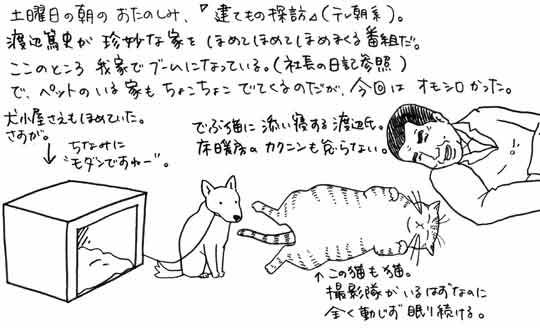 土曜日の朝のおたのしみ、『建てもの探訪』(テレ朝系)。
渡辺篤史が珍妙な家をほめてほめてほめまくる番組だ。
ここのところ我家でブームになっている。(社長の日記参照)
で、ペットのいる家もちょこちょこでてくるのだが、今回はオモシロかった。
犬小屋さえもほめていた。
さすが。
ちなみに
"モダンですねー"。
でぶ猫に添い寝する渡辺氏。
床暖房のカクニンも怠らない。
↑この猫も猫。
撮影隊がいるはずなのに
全く動じず眠り続ける。